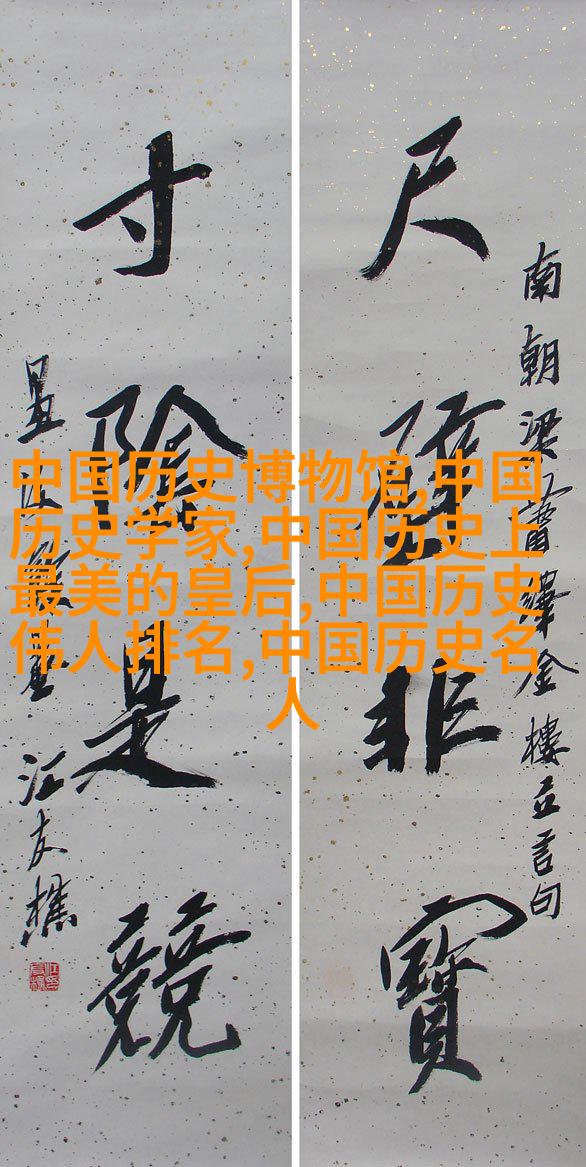 南朝梁蕭繹金樓立言句
尺璧非寶
寸陰是競
江友樵
中国历史博物馆,中国
历史学家,中国历史上
最美的皇后,中国历史
伟人排名,中国历史名
人